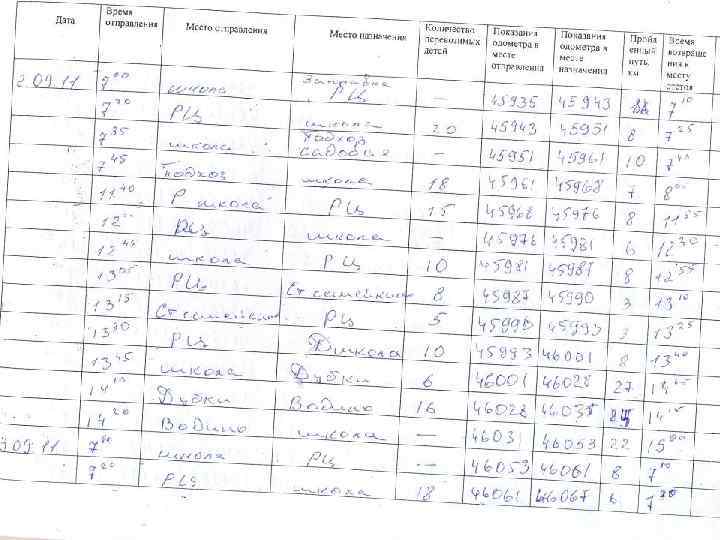 Дата Время отправления Место отправления Место назначения Количество перевозимых детей Показания одометра в месте отправления Показания одометра в месте назначения Пройденный путь, км Время возвращения к месту
2.09.11 7 00 школа Заправка РЦ — 45935 45943 7 10
7 20 РЦ школа 20 45943 45951 8 7 25
7 35 школа Подхоз — 45951 45961 10 7 40
7 45 Подхоз школа 18 45961 45968 7 8 00
11 40 школа РЦ 15 45968 45976 8 11 55
12 РЦ школа — 45976 45981 6 12 30
12 44 школа РЦ 10 45981 45987 8 12 55
13 05 РЦ 8 45987 45990 3 13 10
13 15 РЦ 5 45990 45993 3 13 25
13 30 РЦ школа 10 45993 46001 8 13 40
13 45 школа Дубки 6 46001 46028 27
14 Дубки Водино 16 46028 14 15
14 20 Водино школа — 46031 46053 22 15 00
3.09.11 7 00 школа РЦ — 46053 46061 8 7 10
7 20 РЦ школа 18 46061 46067 6 7 30